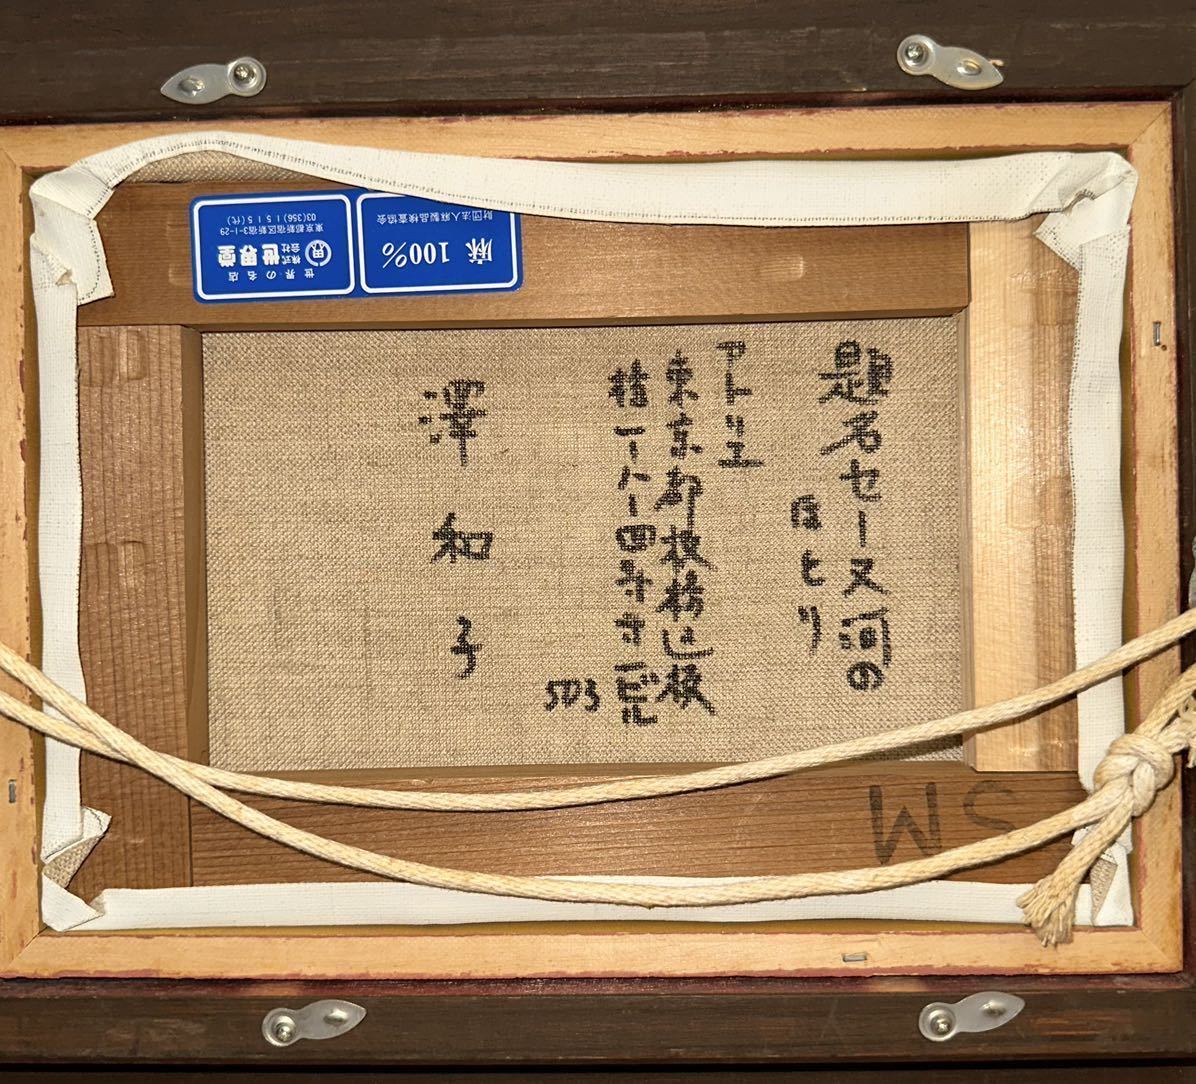 題名セーヌ河の
ほとり
アトリエ
東京都板橋区板
橋一ー八ー四 ビル
503
澤 和 子
麻 100%
財団法人麻製品検査協会
世界の名店
株式会社 世界堂
東京都新宿区新宿3-1-29
03(356)1515(代)
SM